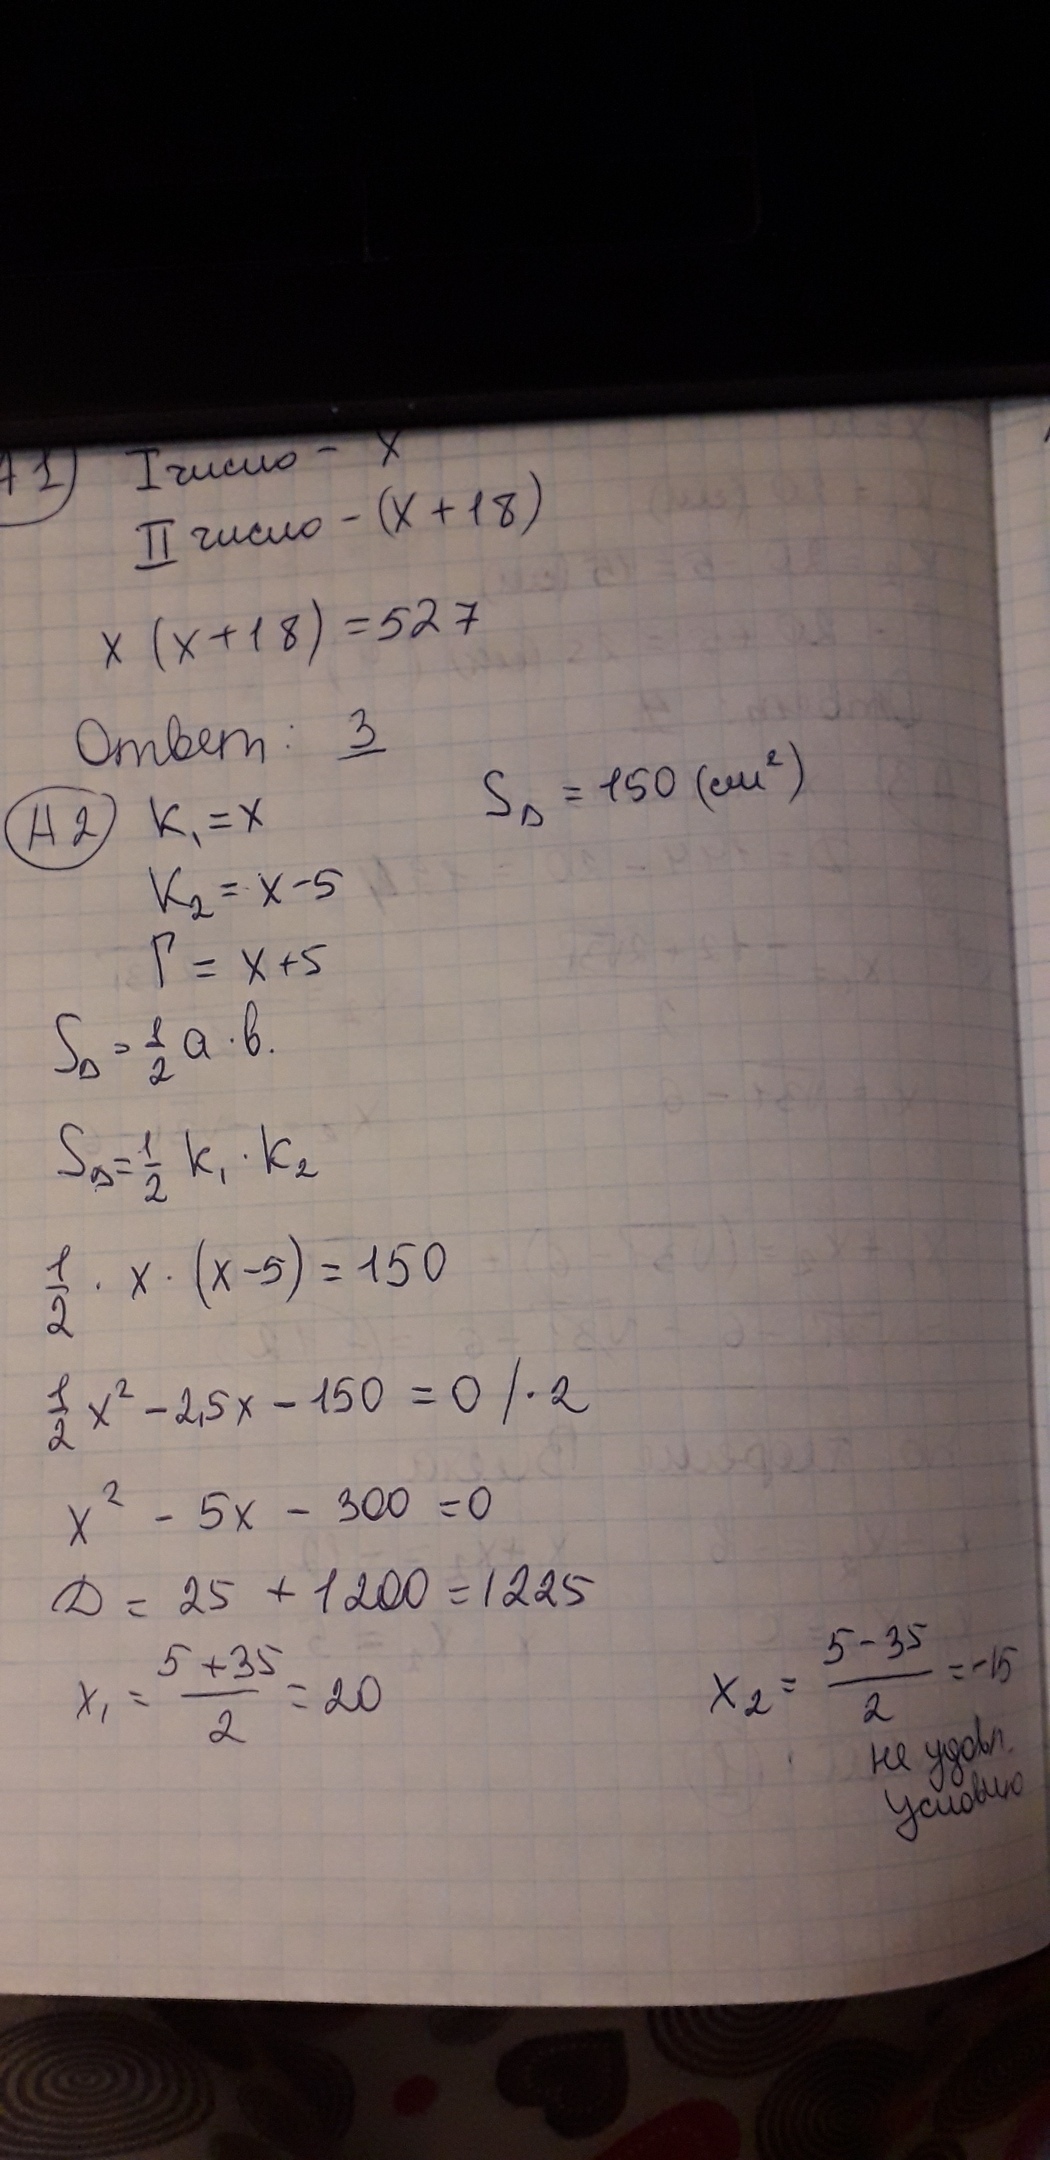 А1) I число - x
II число - (x + 18)
x (x + 18) = 527
Ответ: 3
А2 К₁ = x S△ = 150 (см²)
К₂ = x - 5
Г = x + 5
S△ = 1/2 a · b.
S△ = 1/2 К₁ · К₂
1/2 · x · (x - 5) = 150
1/2 x² - 2,5x - 150 = 0 / · 2
x² - 5x - 300 = 0
D = 25 + 1200 = 1225
x₁ = (5 + 35)/2 = 20 x₂ = (5 - 35)/2 = -15
не удовл.
условию